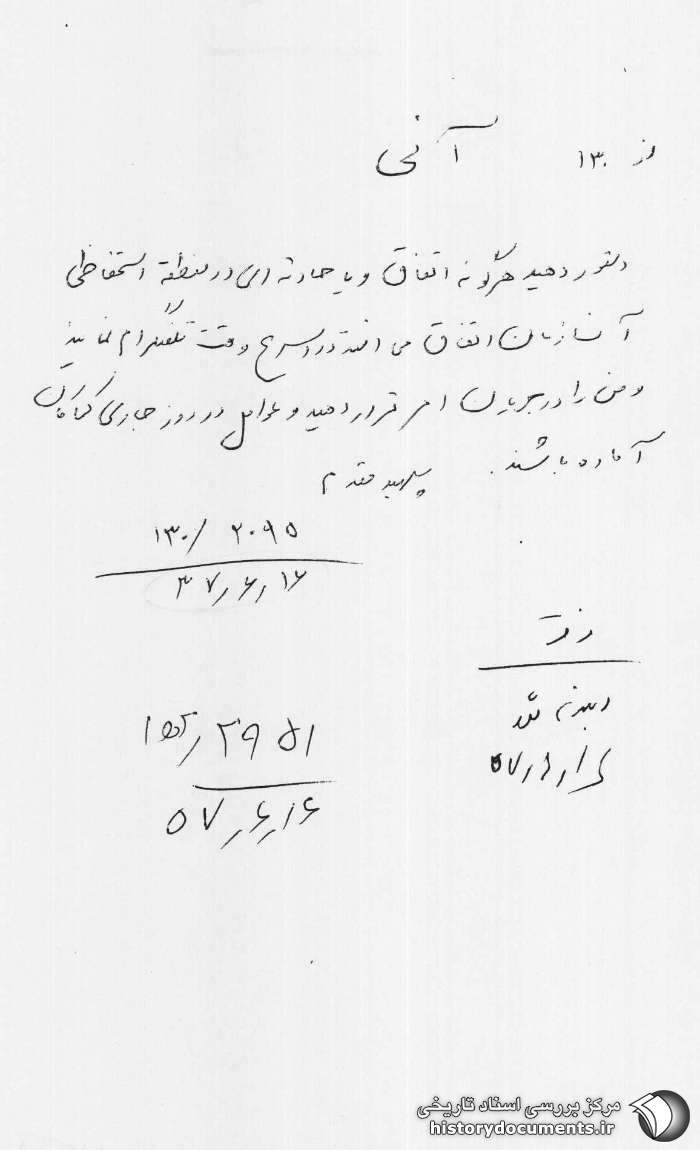 از ۱۳۰
آنی
دستور دهید هرگونه اتفاق و یا حادثه ای در منطقه استحفاظی
آن سازمان اتفاق می افتد در اسرع وقت تلگرام نمایند
و من را در جریان امر قرار دهید و عوامل در روز جاری کماکان
آماده باشند. سپهبد مقدم
۱۳۰/ ۲۰۹۵
۳۷/۶/۱۶
رمز
۵۷/
۲۹۵۱
۵۷/۶/۱۶
مرکز بررسی اسناد تاریخی
historydocuments.ir